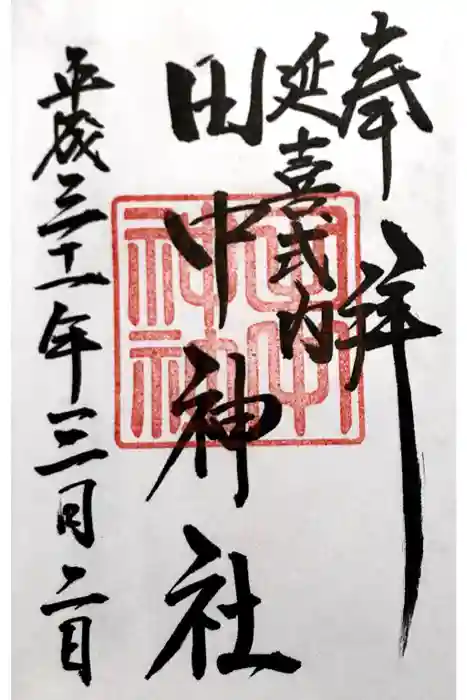 奉拝
延喜式内
田中神社
平成三十一年三月二日
田中
神社